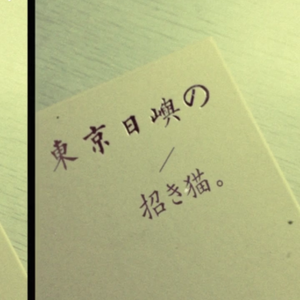 東京日嶼の
／
招き猫。